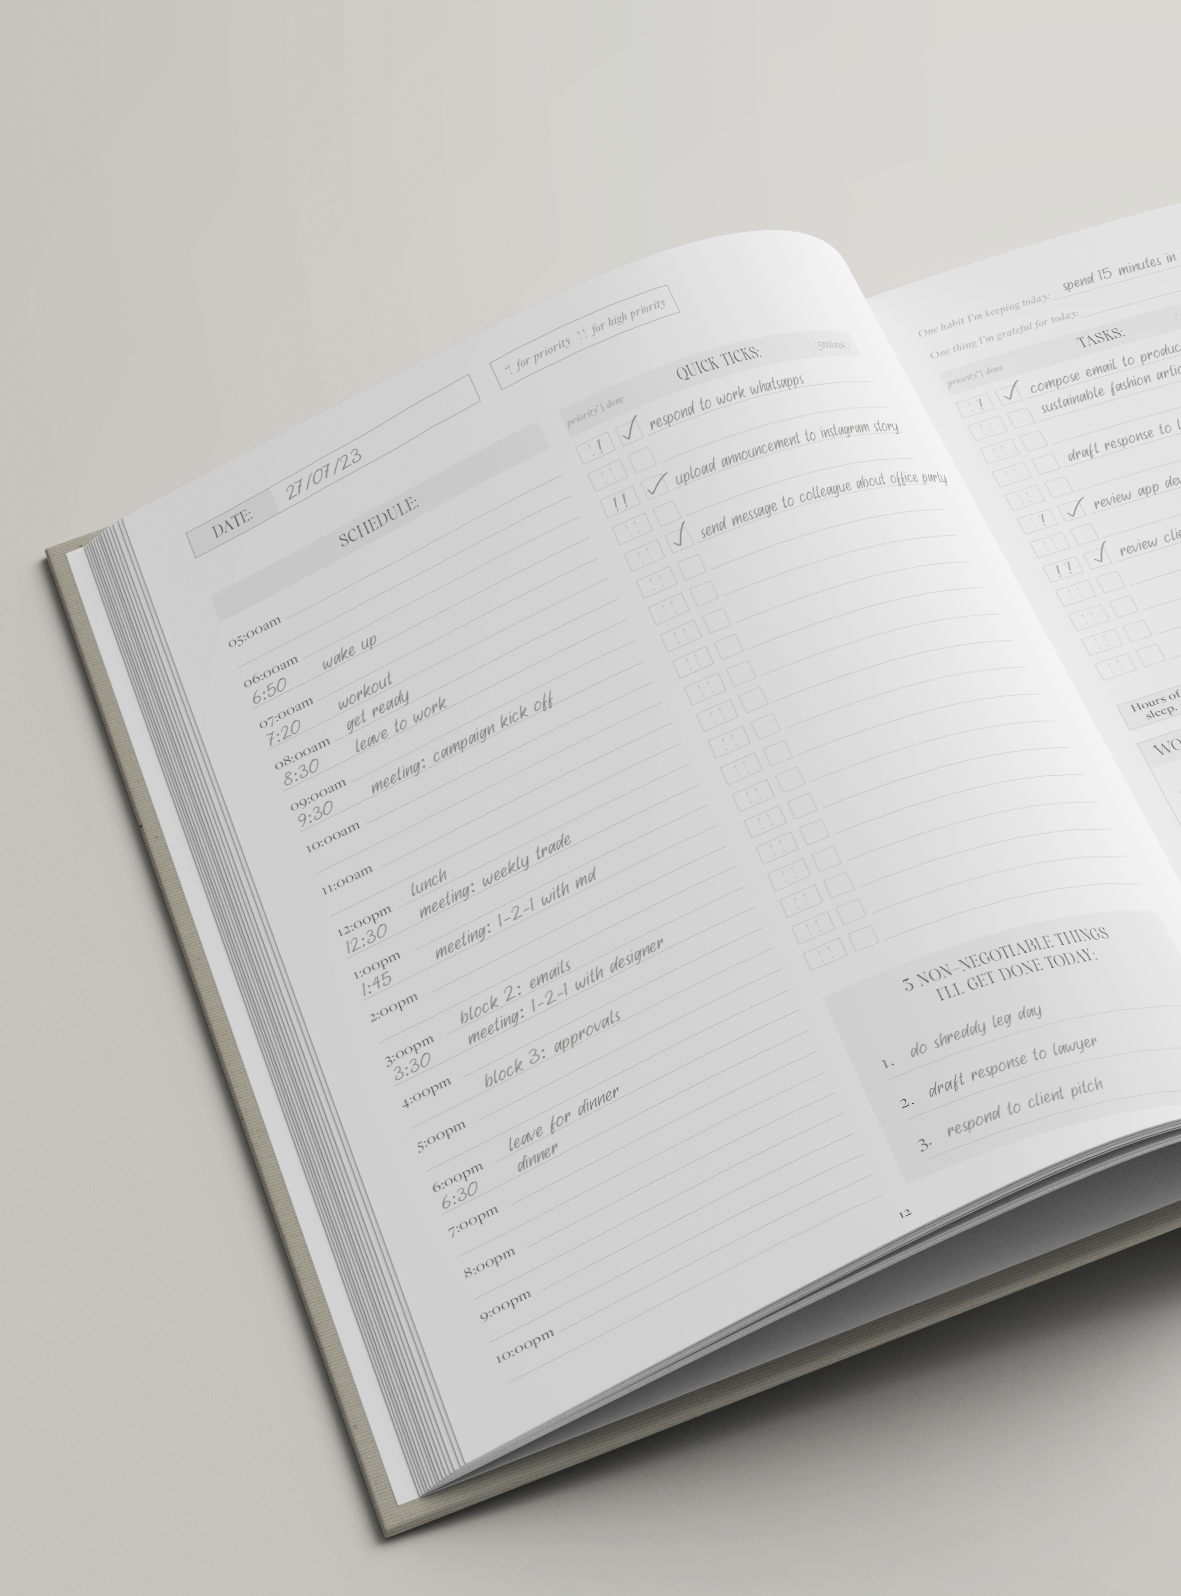 DATE: 27/07/23
! for priority !! for high priority
SCHEDULE:
05:00am
06:00am wake up
6:50
07:00am workout
7:20 get ready
08:00am leave to work
8:30
09:00am meeting: campaign kick off
9:30
10:00am
11:00am
12:00pm lunch
12:30 meeting: weekly trade
1:00pm meeting: 1-2-1 with md
1:45
2:00pm
3:00pm block 2: emails
3:30 meeting: 1-2-1 with designer
4:00pm block 3: approvals
5:00pm
6:00pm leave for dinner
6:30 dinner
7:00pm
8:00pm
9:00pm
10:00pm
QUICK TICKS:
priority | done
! respond to work whatsapps
!! upload announcement to instagram story
send message to colleague about office party
3 NON-NEGOTIABLE THINGS
I'LL GET DONE TODAY:
1. do shreddy leg day
2. draft response to lawyer
3. respond to client pitch
12
One habit I'm keeping today: spend 15 minutes in
One thing I'm grateful for today:
TASKS:
priority | done
! compose email to
sustainable fashion
draft response to
! review app
!! review
Hours of
sleep.